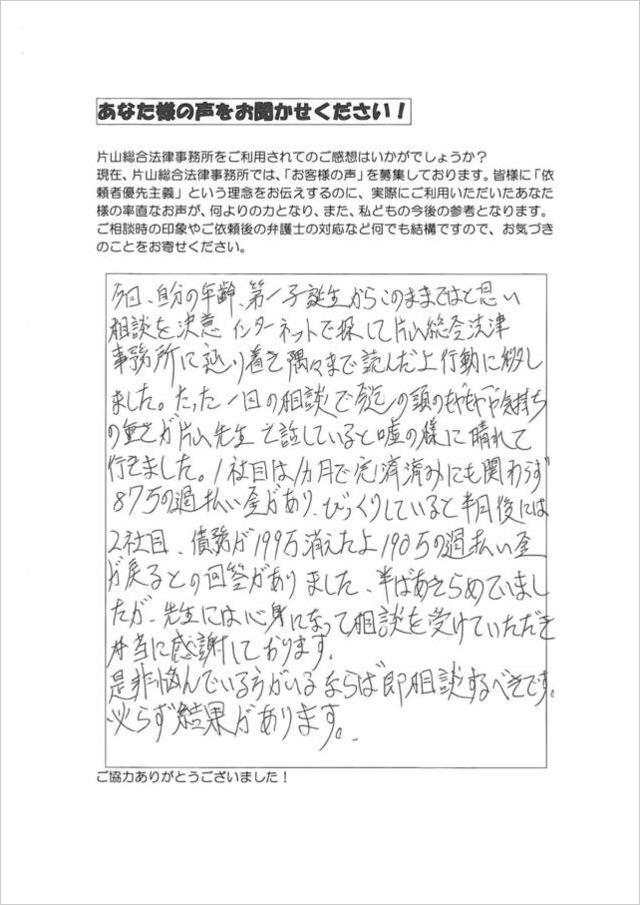 あなた様の声をお聞かせください！
片山総合法律事務所をご利用されてのご感想はいかがでしょうか？
現在、片山総合法律事務所では、「お客様の声」を募集しております。皆様に「依
頼者優先主義」という理念をお伝えするのに、実際にご利用いただいたあなた
様の率直なお声が、何よりの力となり、また、私どもの今後の参考となります。
ご相談時の印象やご依頼後の弁護士の対応など何でも結構ですので、お気づき
のことをお寄せください。
今回、自分の年齢、第一子誕生からこのままではと思い
相談を決意 インターネットで探して片山総合法律
事務所に辿り着き隅々まで読んだ上行動に移し
ました。たった一日の相談で の頭のもやもや気持ち
の重さが片山先生と話していると嘘の様に晴れて
行きました。1社目は1ヵ月で完済済みにも関わらず
87万の過払い金があり、びっくりしていると半月後には
2社目、債務が199万消えたよ190万の過払い金
が戻るとの回答がありました、半ばあきらめていまし
たが、先生には心身になって相談を受けていただき
本当に感謝しております。
是非悩んでいる方がいるならば即相談するべきです。
必らず結果があります。
ご協力ありがとうございました！